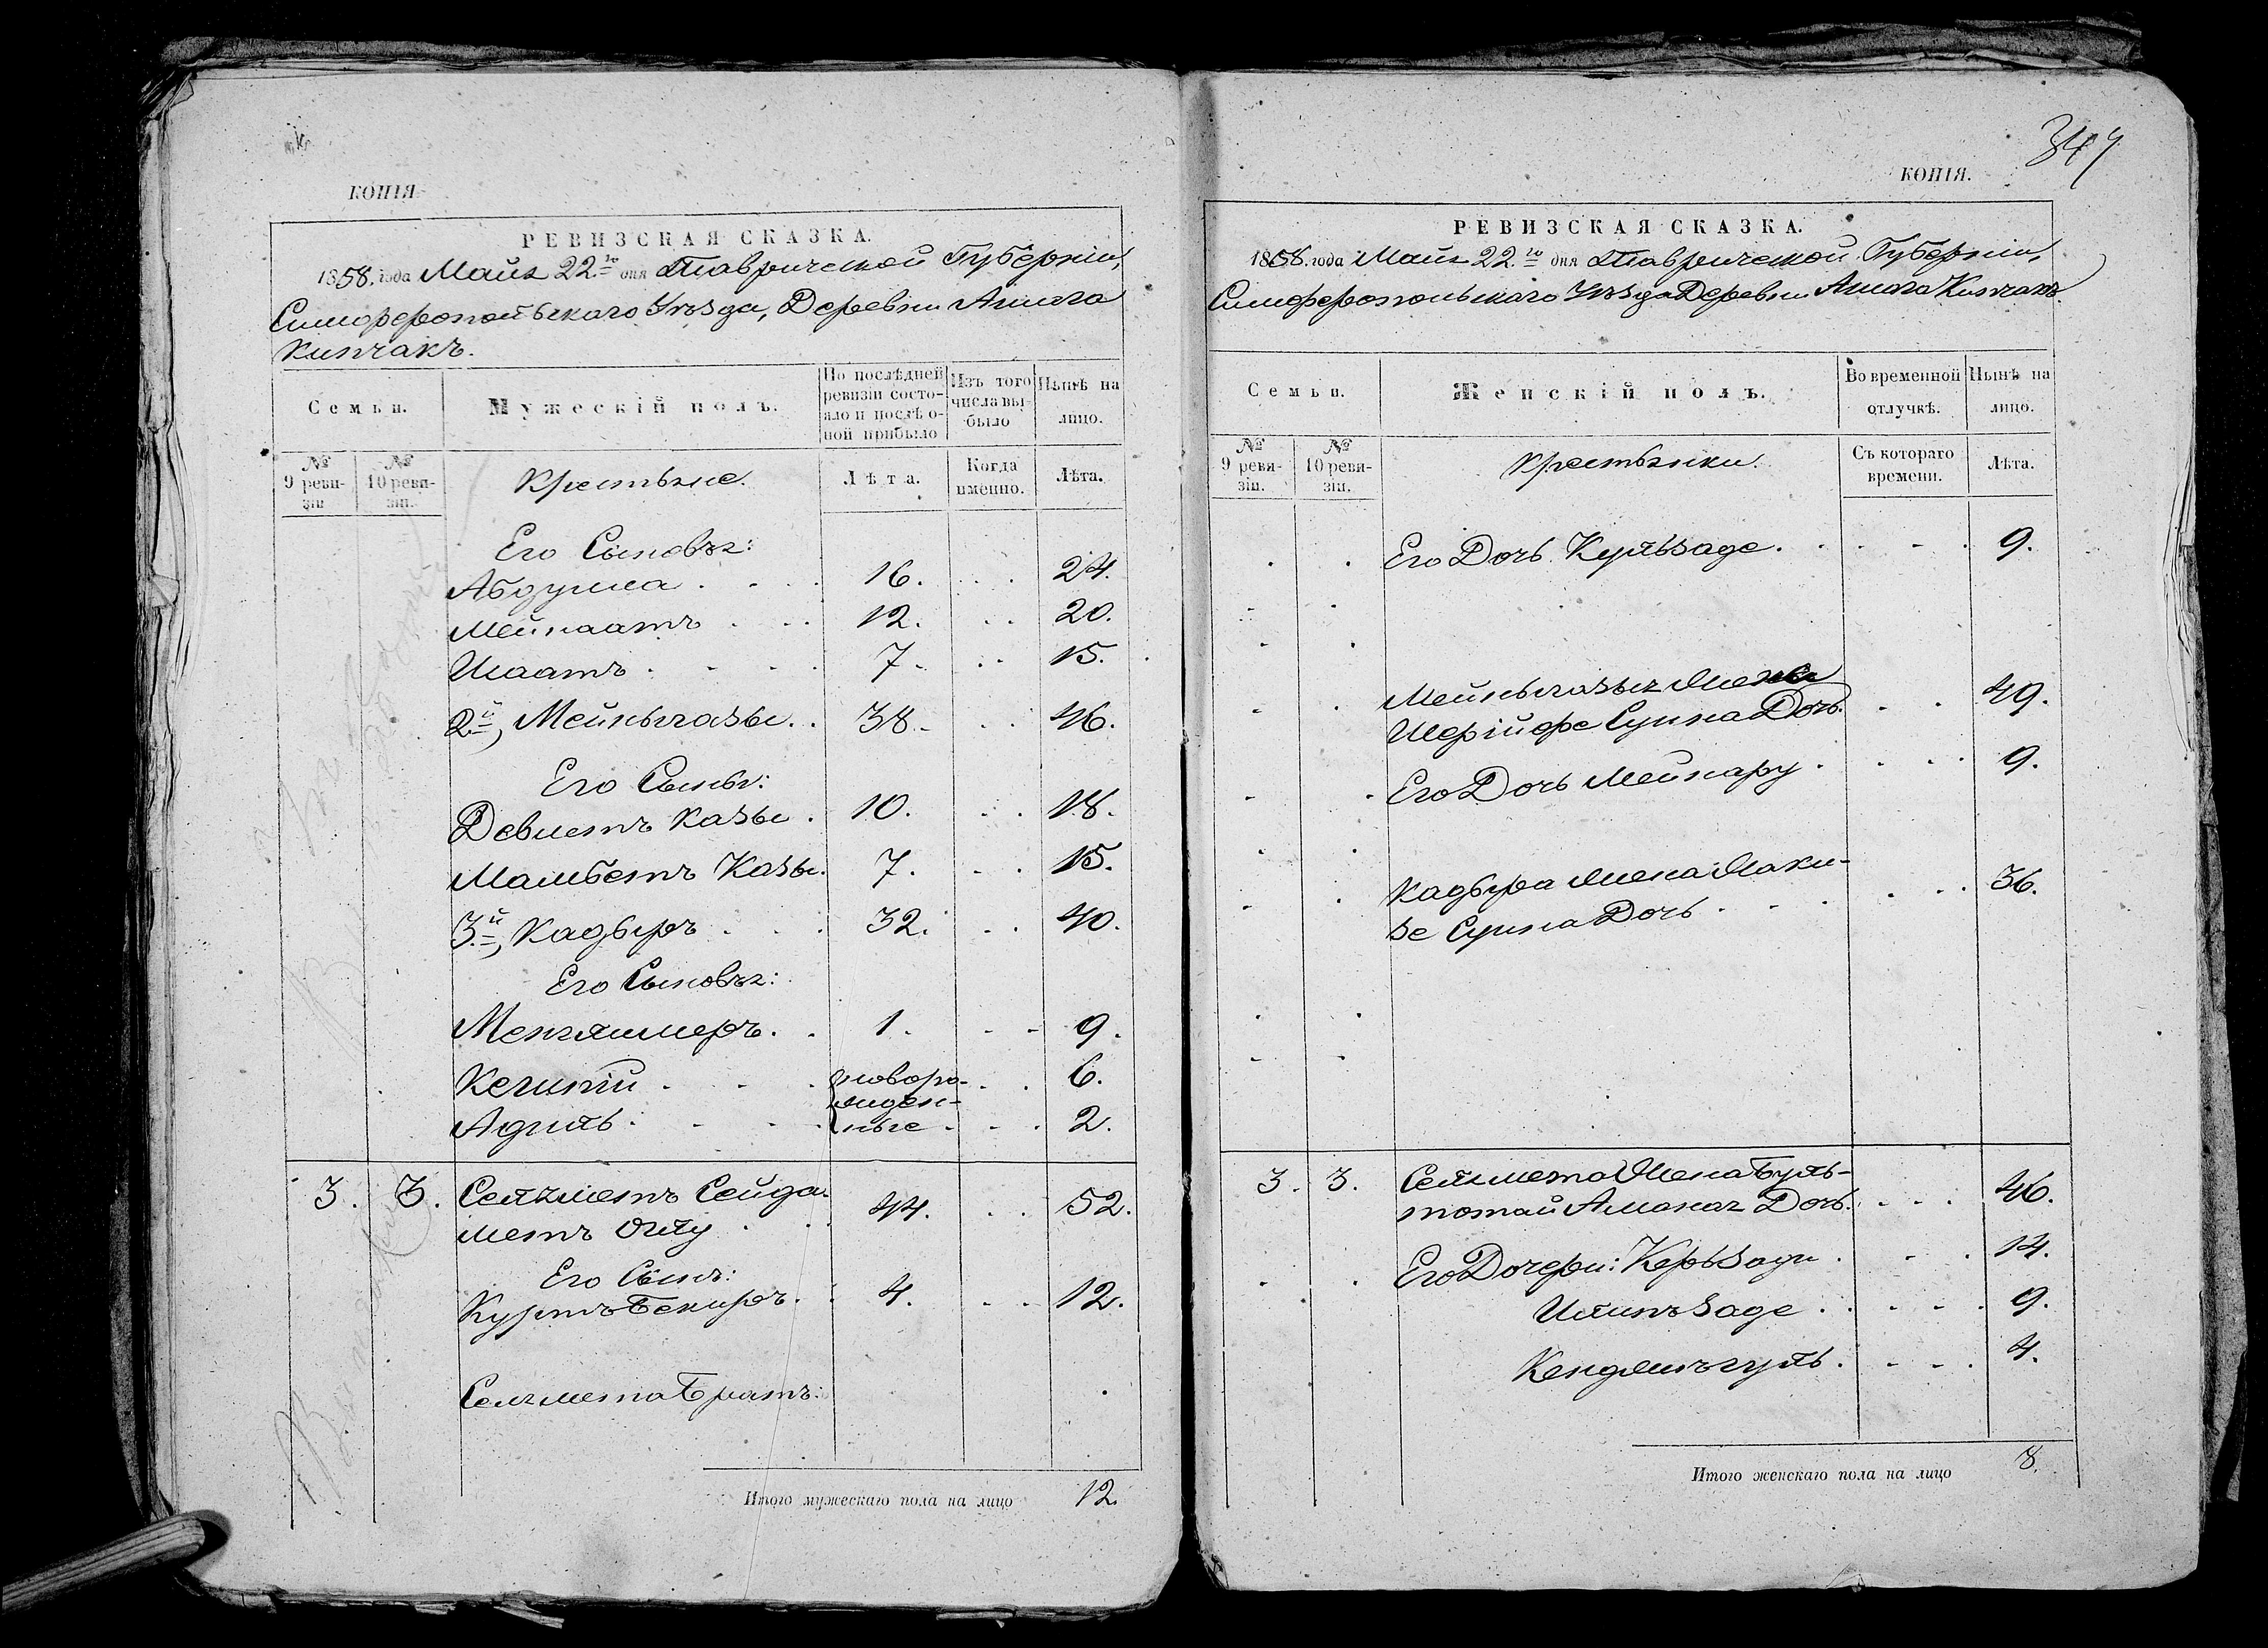 КОПІЯ
РЕВИЗСКАЯ СКАЗКА.
1858. года Маія 22.го дня Таврической Губерніи,
Симферопольскаго Уѣзда, Деревни Ашага
Кипчакъ.
Семьи.
Мужескій полъ.
По послѣдней ревизіи состояло и послѣ оной прибыло
Изъ того числа выбыло
Нынѣ на лицо.
№ 9 ревизіи
№ 10 ревизіи.
Крестьяне.
Лѣта.
Когда именно.
Лѣта.
Его Сыновья:
Абдулла . . . . 16. . . . 24.
Мейнаатъ . . . 12. . . 20.
Шаатъ . . . . 7. . . 15.
2й, Мейнъгазы . . 38. . . 46.
Его Сыны:
Девлетъ Казы . 10. . . 18.
Мамбетъ Казы. 7. . . 15.
3й, Кадыръ . . . 32. . . 40.
Его Сыновья:
Менглимеръ . . 1. - - 9.
. . . новоро- . . 6.
жден-
Адиль . . . . ные . . . 2.
3. 3. Селяметъ Сейда-
метъ Оглу . . 44. . . 52.
Его Сынъ:
Куртъ Бекиръ . . 4. . . 12.
Селямета Братъ:
Итого мужескаго пола на лицо 12.
347
КОПІЯ.
РЕВИЗСКАЯ СКАЗКА.
1858. года Маія 22.го дня Таврической Губерніи,
Симферопольскаго Уѣзда Деревни Ашага Кипчакъ.
Семьи.
Женскій полъ.
Во временной отлучкѣ.
Нынѣ на лицо.
№ 9 ревизіи.
№ 10 ревизіи.
Крестьянки.
Съ котораго времени.
Лѣта.
Его Дочь Кульзаде . . . - . 9.
Мейнъгазы Жена
Шерійфе Сулна Дочь. . . 49.
Его Дочь Мейнару . . . . 9.
Кадыра Жена Маки-
зе Сулна Дочь . . . . . 36.
3. 3. Селямета Жена Буль-
тотай Аманая Дочь. . . . 46.
Его Дочери: Керьзади . - . 14.
Илипъзаде . . . - . 9.
Кендженъгуль . . - . 4.
Итого женскаго пола на лицо 8.